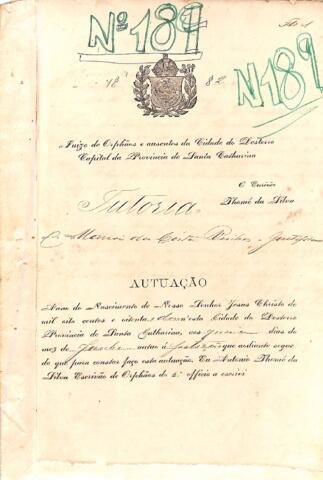 Nº 189
Nº 189
1882
Juizo de Orphãos e ausentes da Cidade do Desterro
Capital da Provincia de Santa Catharina
O Escrivão
Thomé da Silva
Tutoria
da Costa
AUTUAÇÃO
Anno do Nascimento de Nosso Senhor Jesus Christo de
mil oito centos e oitenta e dous n'esta Cidade do Desterro
Provincia de Santa Catharina, aos quinze dias do
mez de autuo a que adiante segue
do que para constar faço esta autuação. Eu Antonio Thomé da
Silva Escrivão de Orphãos do 2º officio a escrivi